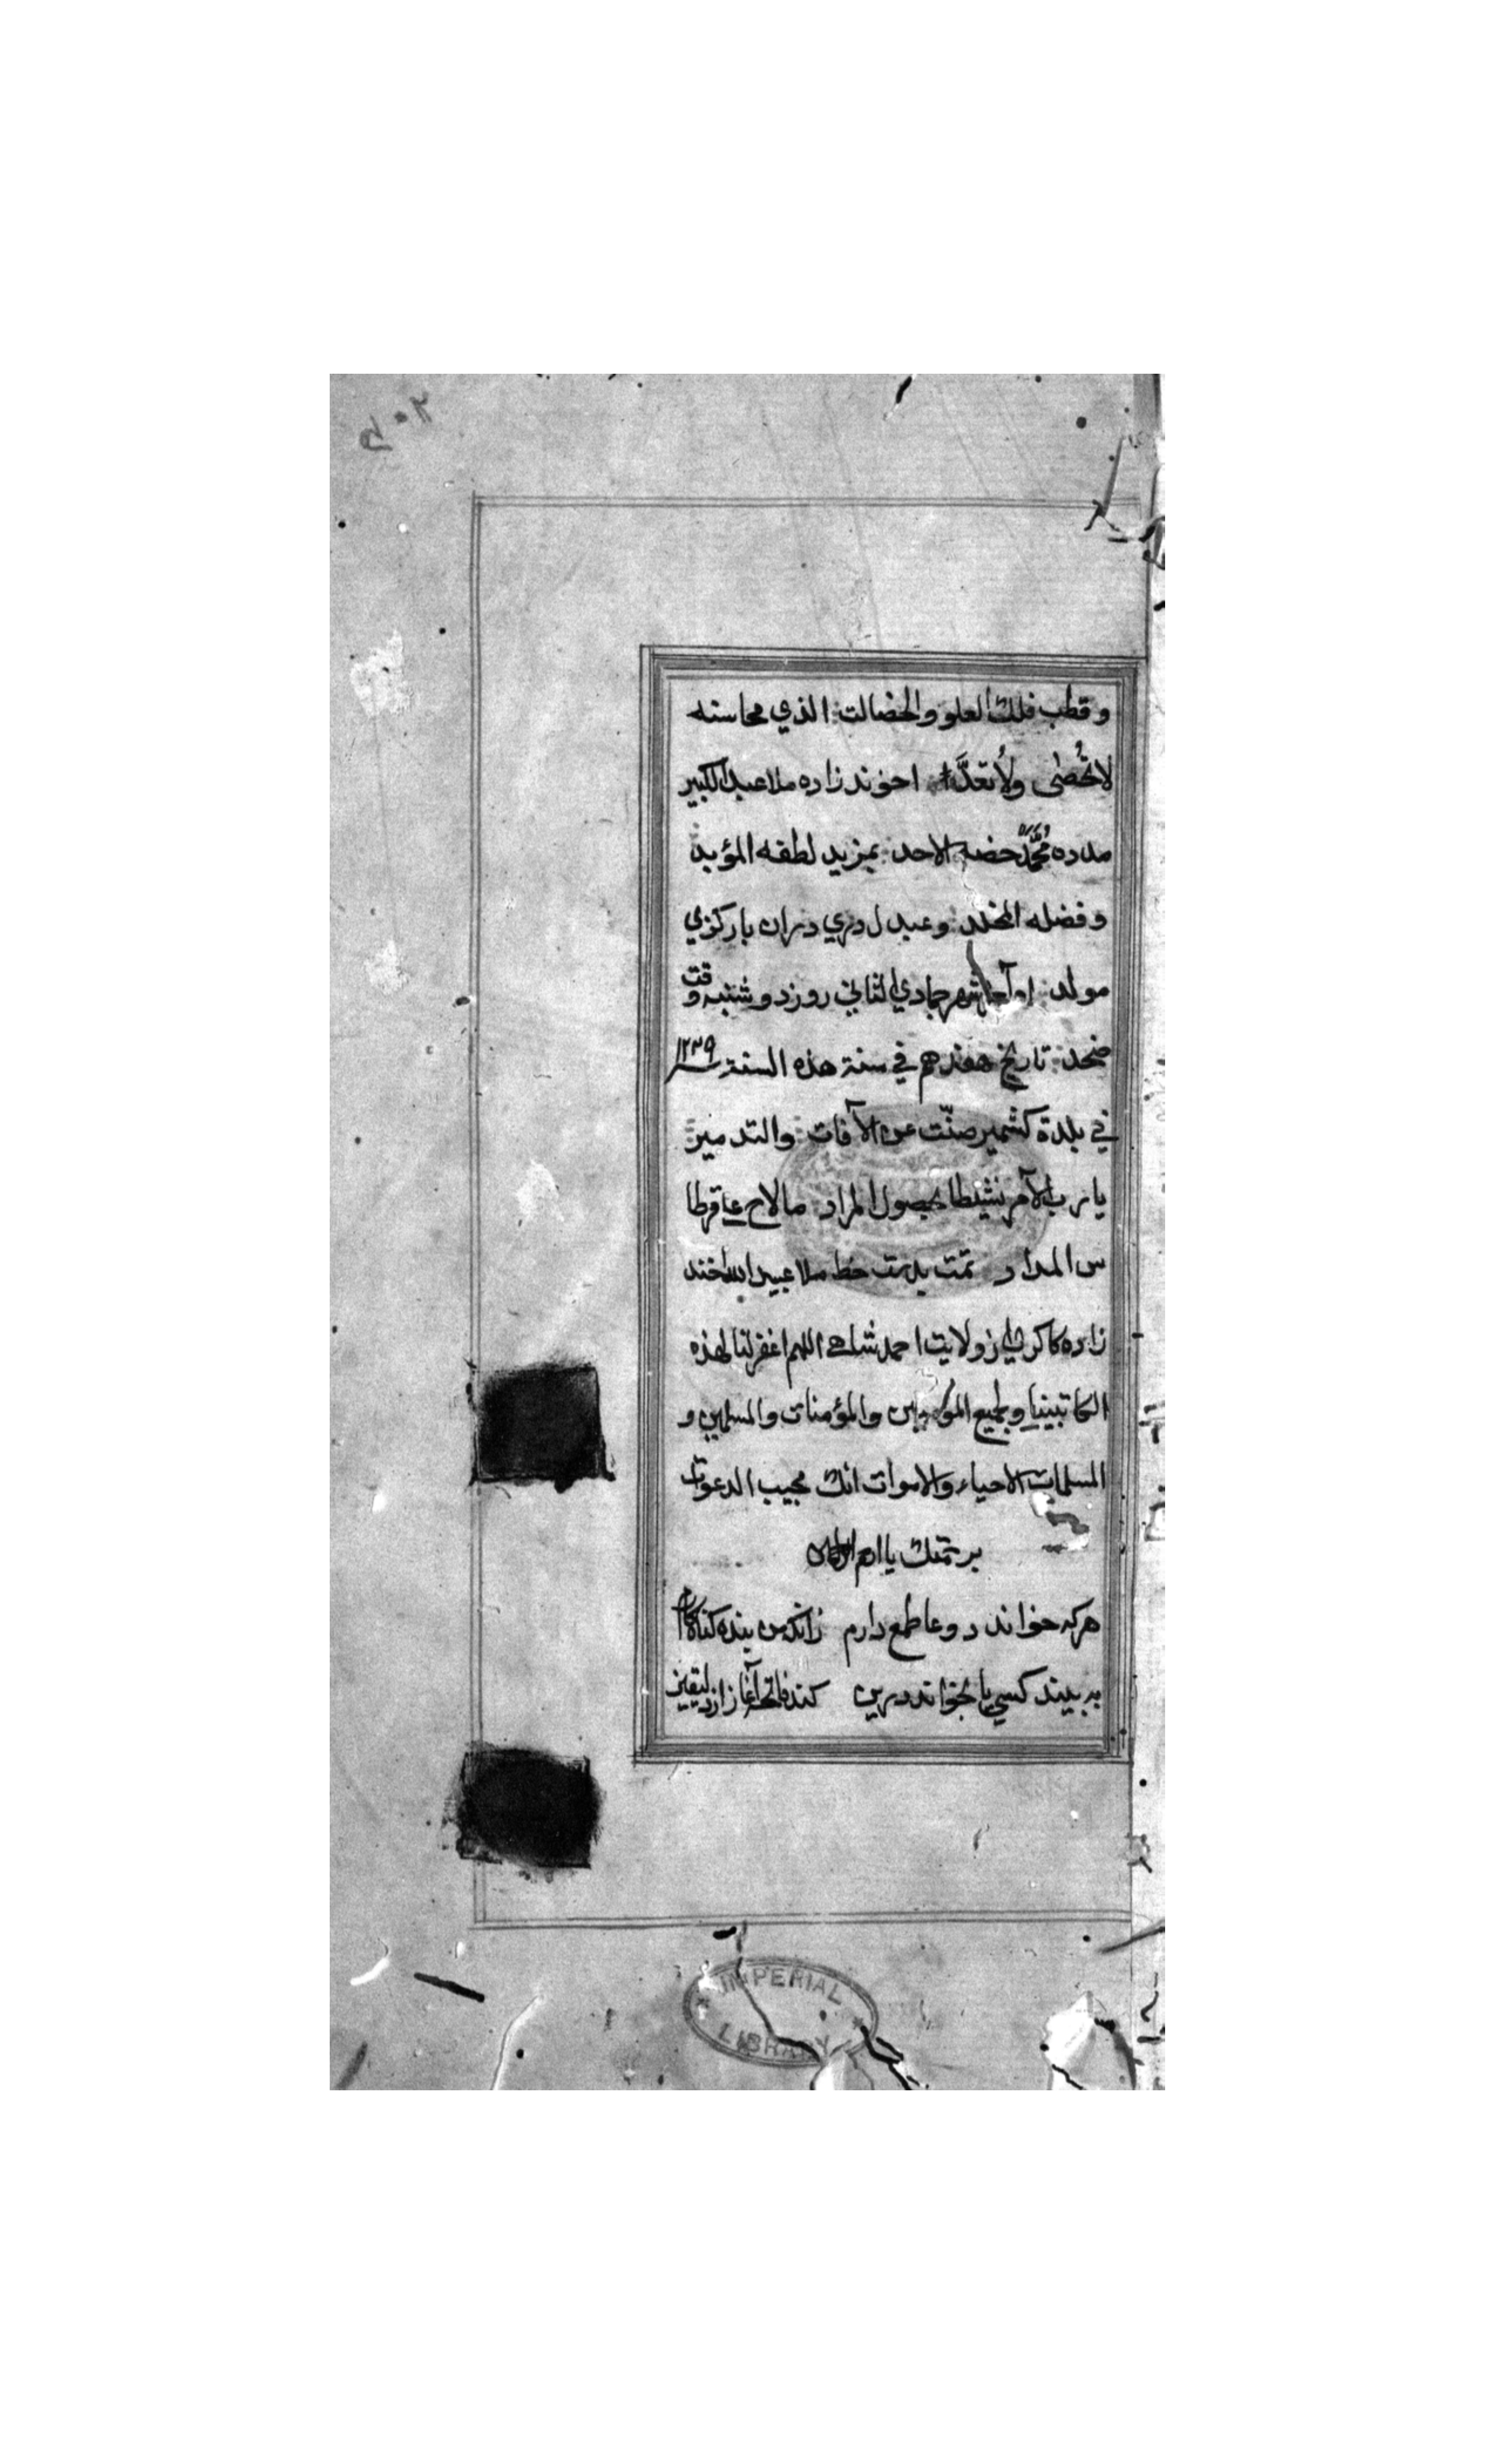 و قطب فلك العلو والخضالت الذي محاسنه
لا تُحْصٰی ولا تعدّ اخوند زاده ملا عبد الکبیر
مدده مُحَمَّد حضه الاحد بمزید لطفه المؤید
و فضله المخلد وعبدل دري دران بارکزي
مولد شهر جمادي الثاني روز دو شنبه وقت
ضحد تاریخ هفدهم في سنة هذه السنة ۱۲۳۹
في بلدة کشمیر صنّت عن الآفات والتدمیر
یا رب الآمر نشیطا بحصول المراد مالاح عاقرطا
س المداد تمت بدست خط ملا عبید الله اخند
زاده کاکري از ولایت احمد شاهي اللهم اغفر لنا لهذه
الکاتبینا و لجمیع المؤمنین والمؤمنات والمسلمین و
المسلمات الاحیاء والاموات انك مجیب الدعوات
برحمتك یا ارحم الراحمین
هرکه خواند دوعا طمع دارم زانکه من بنده کناه کارم
به بیند کسي یا بخواند درین کند فاتحه آغاز از یقین
IMPERIAL LIBRARY